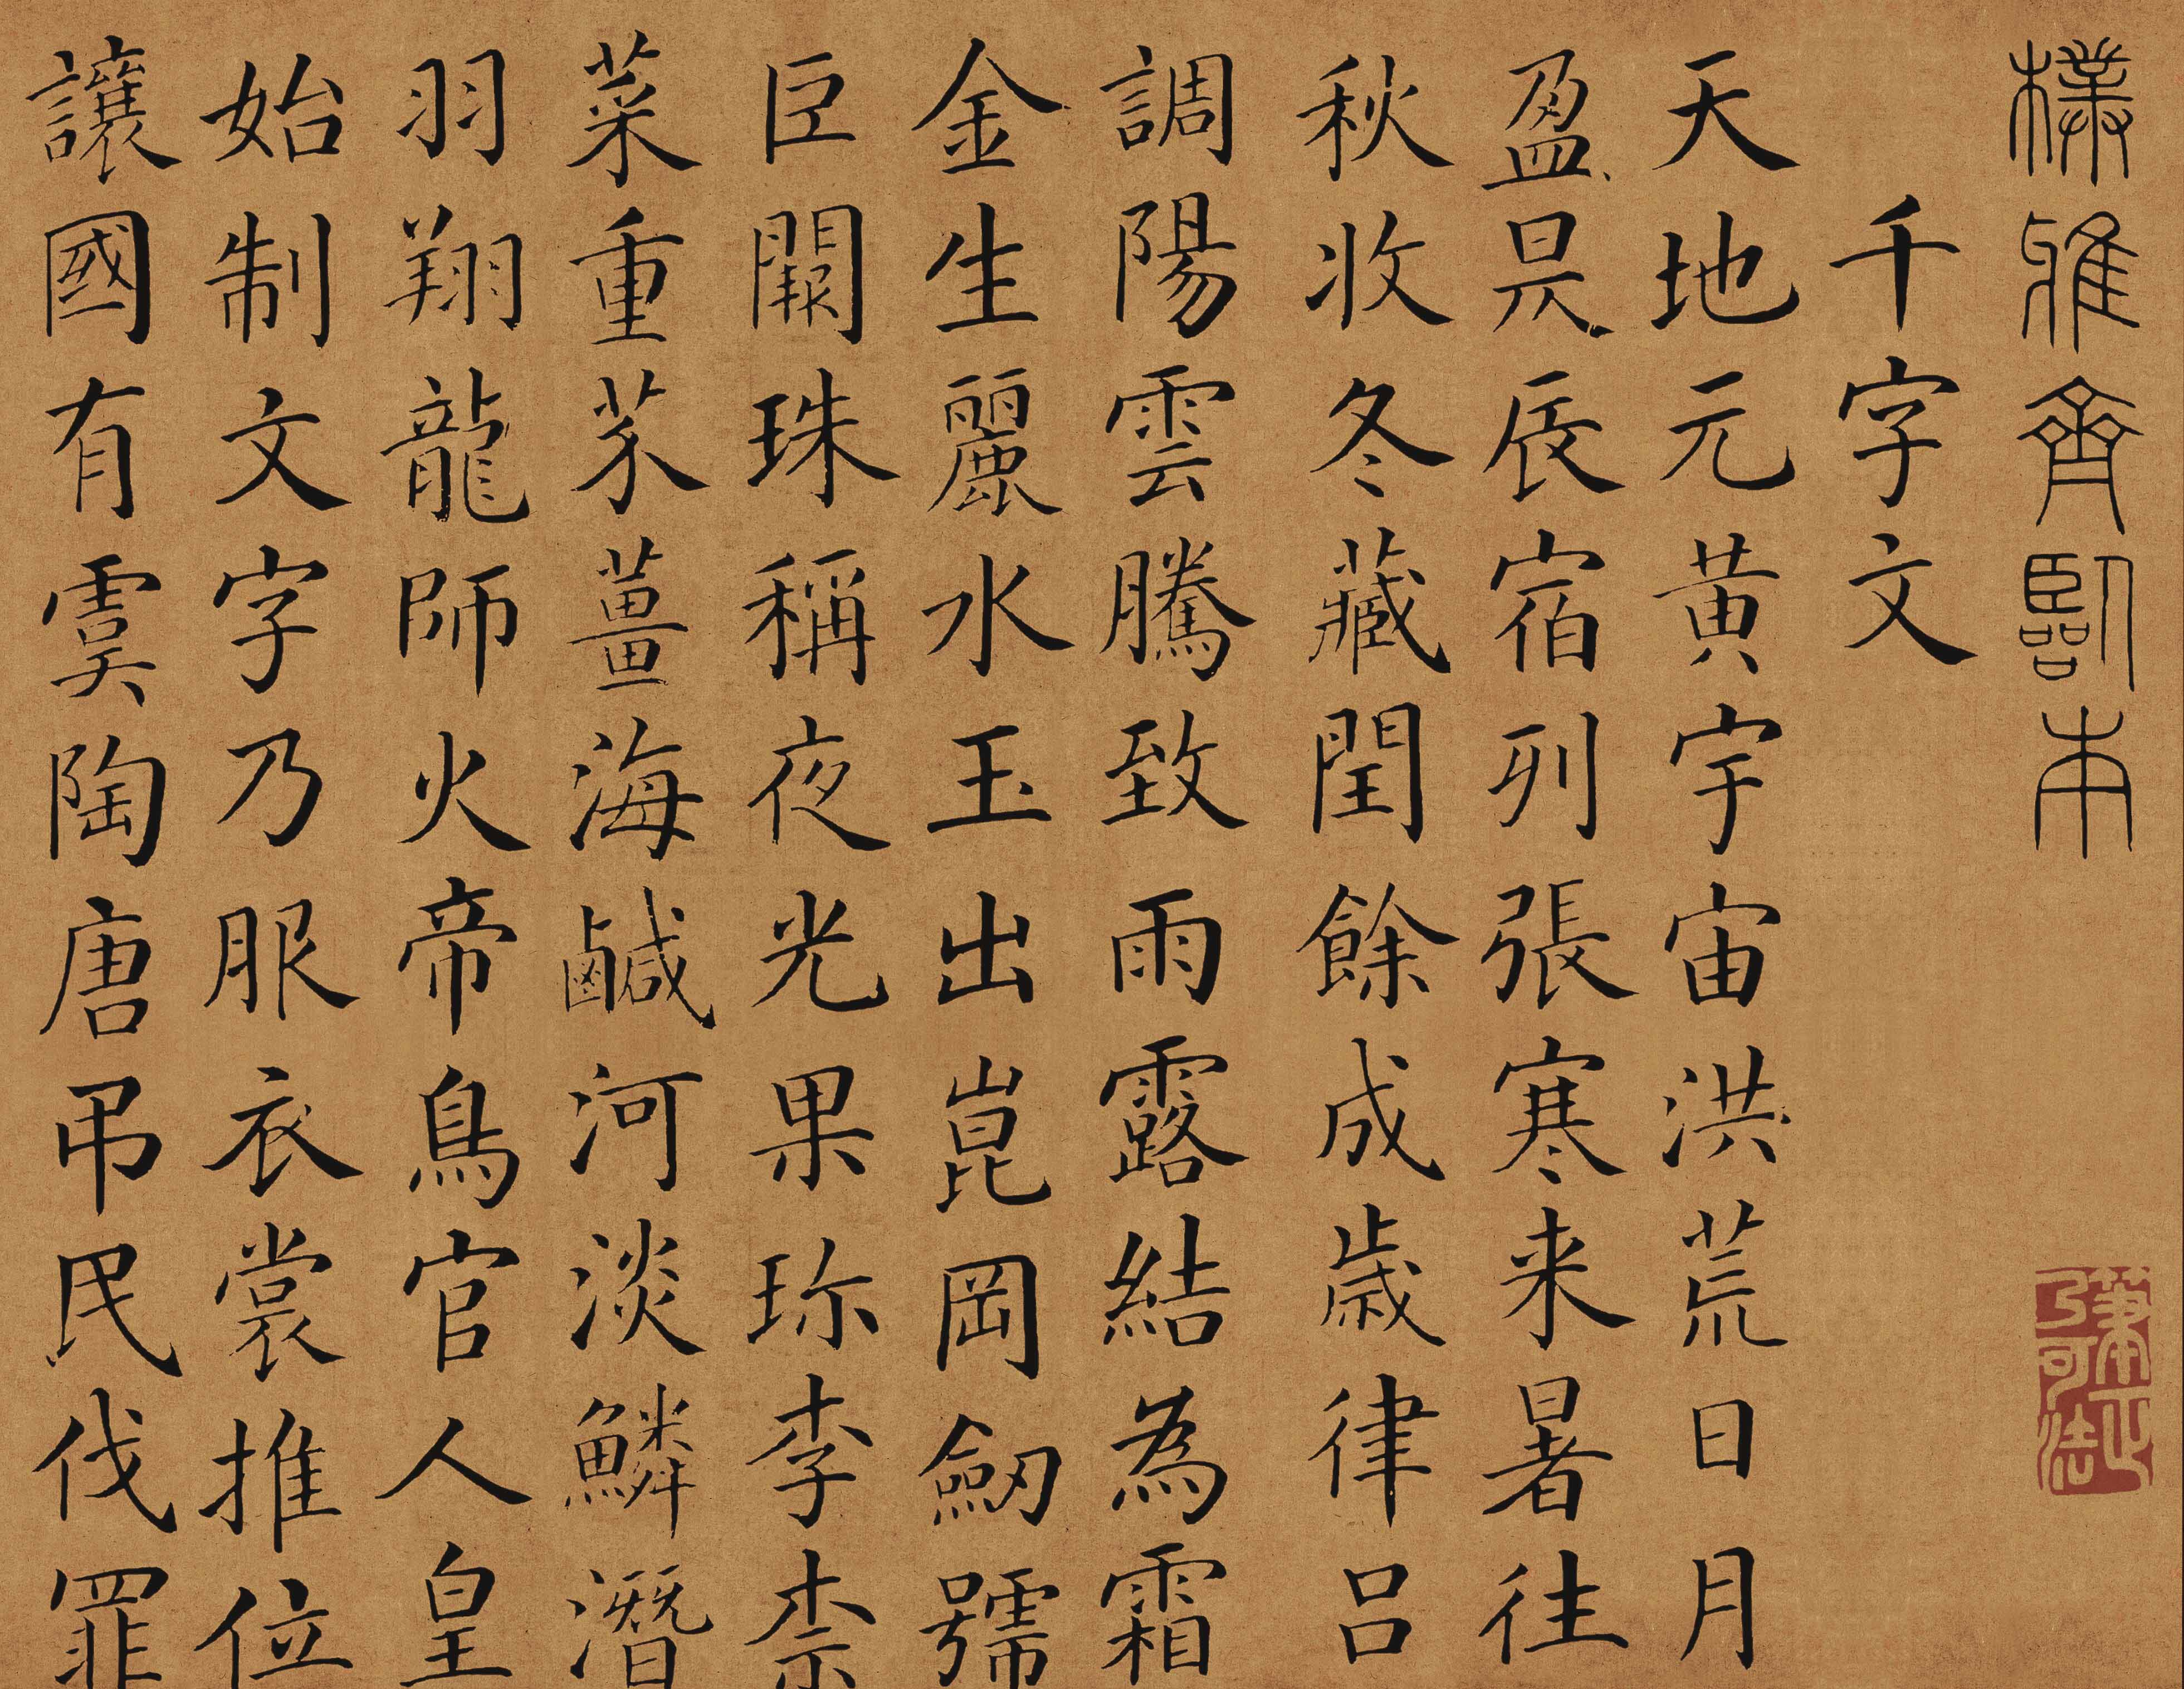 樸雅齋臨本
千字文
天地元黃宇宙洪荒日月
盈昃辰宿列張寒来暑往
秋收冬藏閏餘成歲律呂
調陽雲騰致雨露結為霜
金生麗水玉出崑岡劒號
巨闕珠稱夜光果珎李柰
菜重芥薑海鹹河淡鱗潛
羽翔龍師火帝鳥官人皇
始制文字乃服衣裳推位
讓國有虞陶唐吊民伐罪